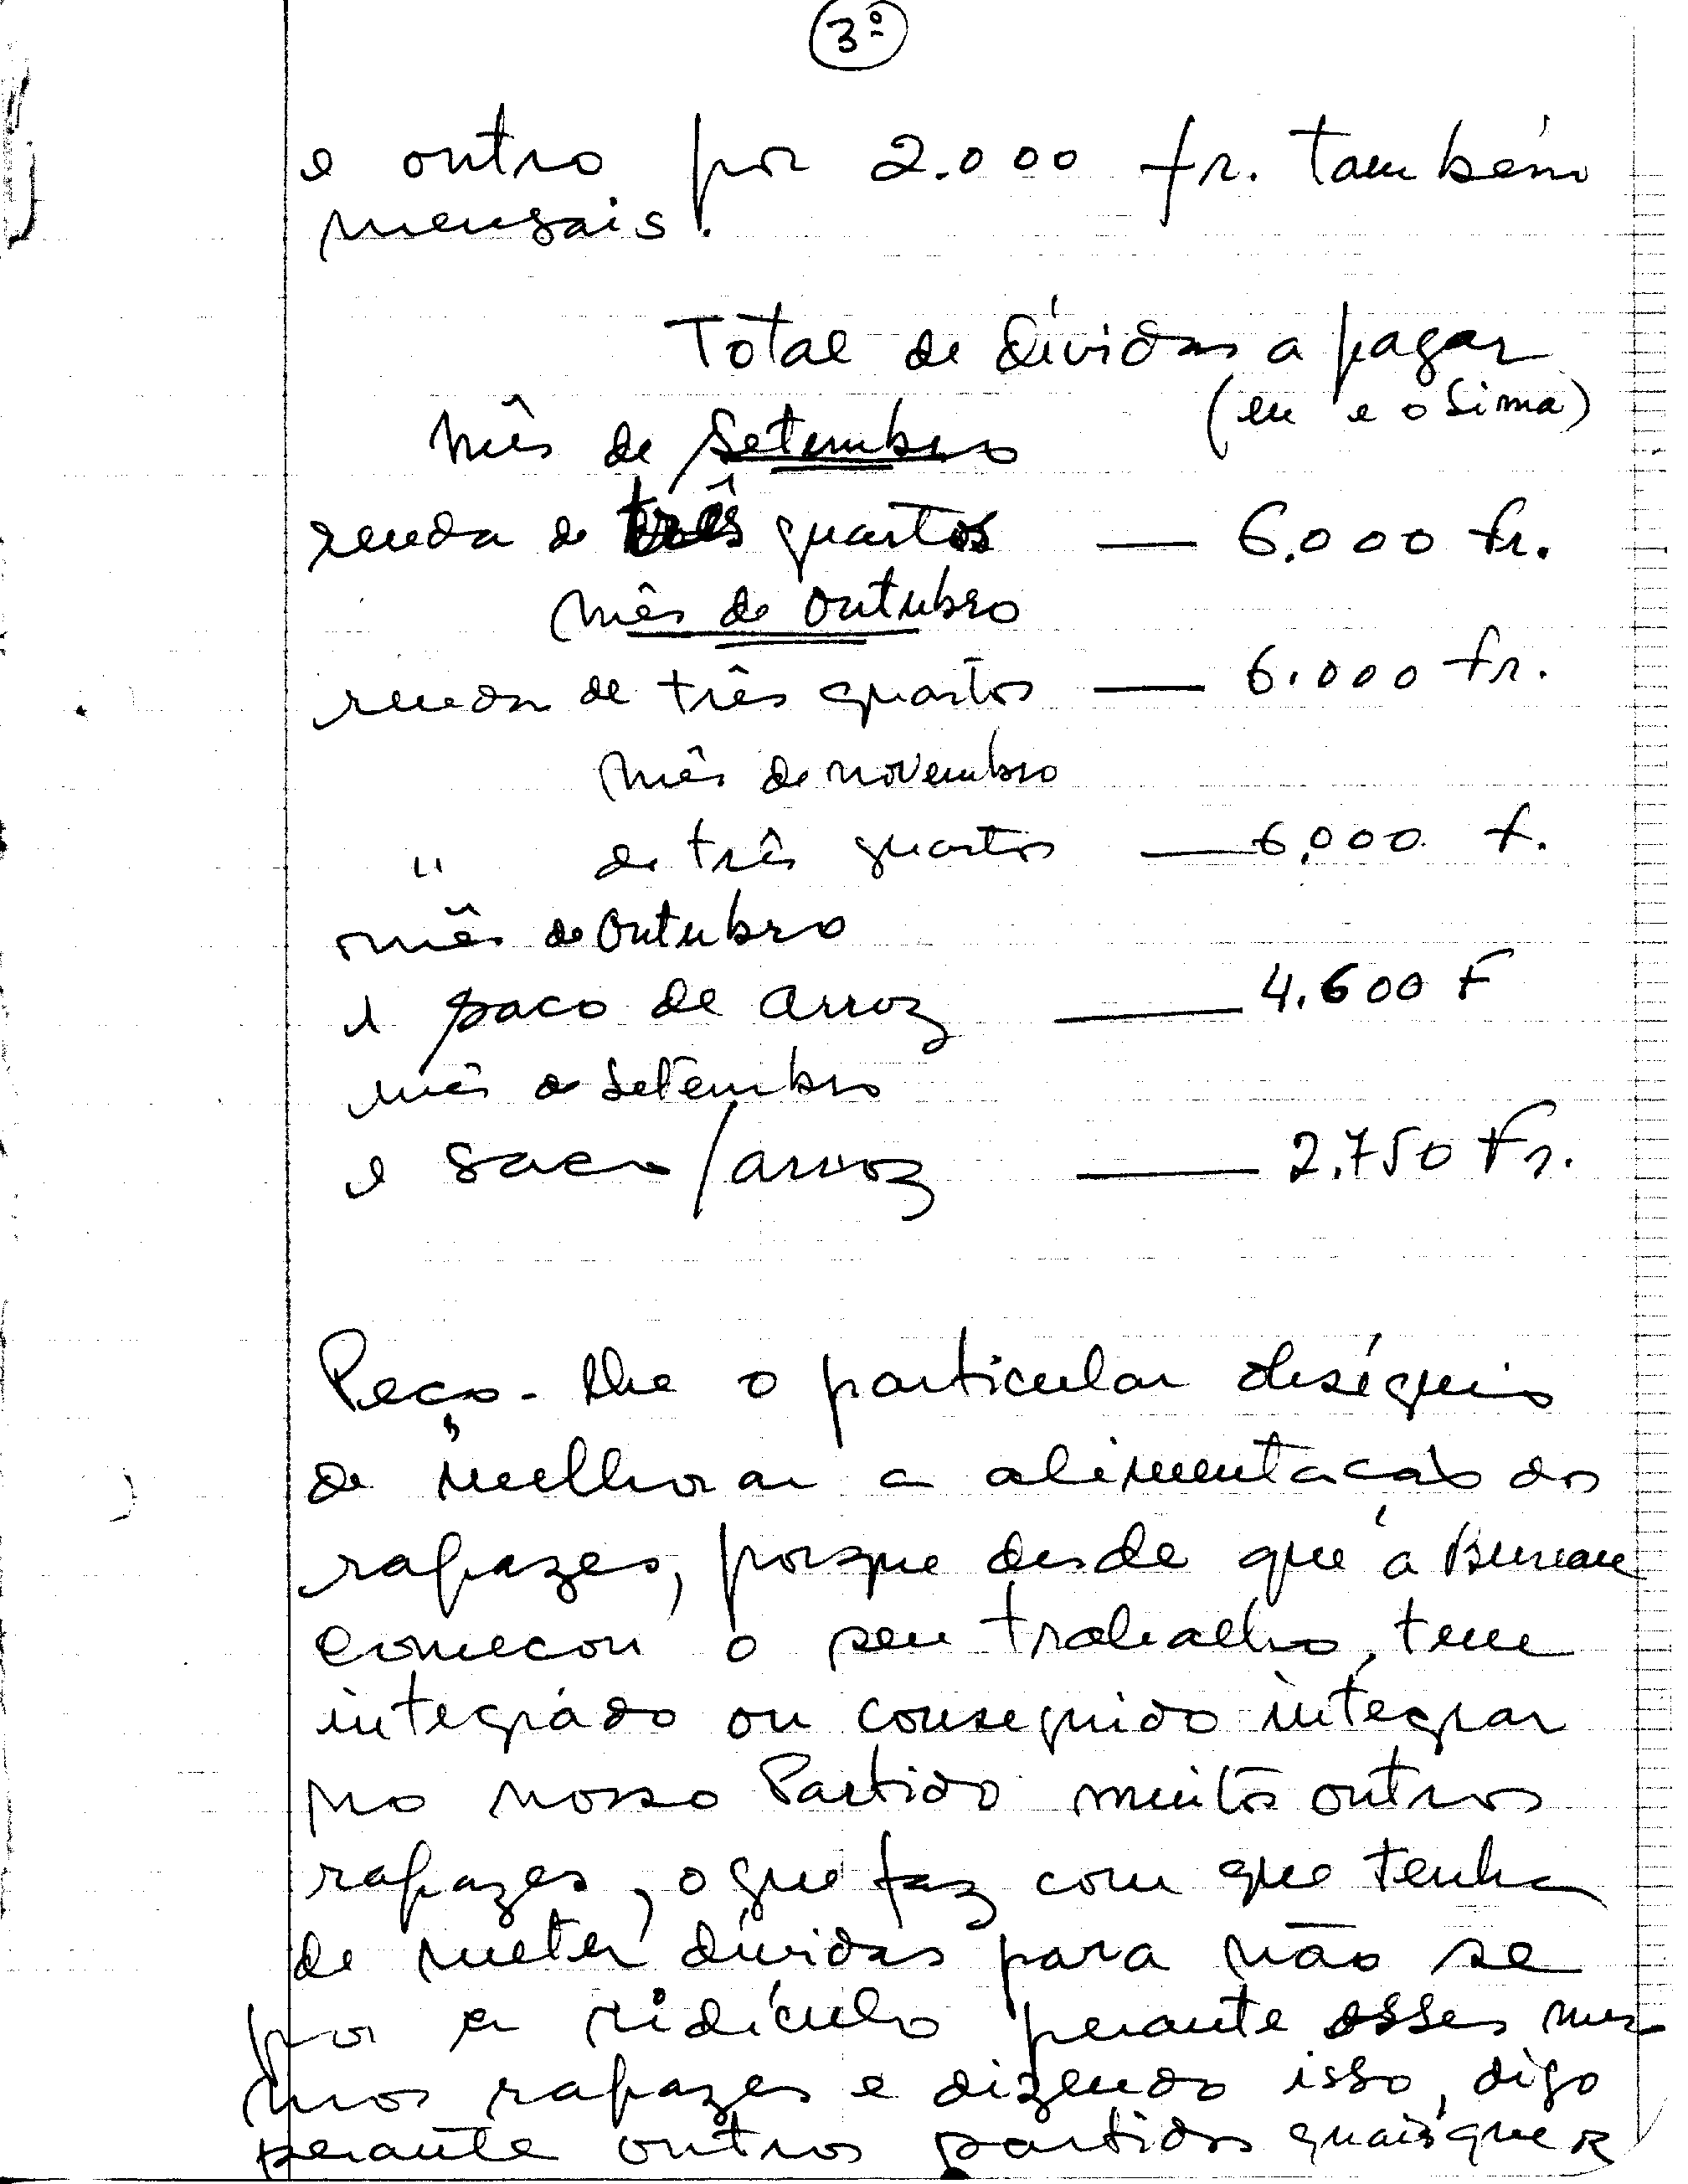 3º
e outro por 2.000 fr. também
mensais.
Total de dívidas a pagar
(eu e o Lima)
Mês de Setembro
renda de três quartos — 6.000 fr.
Mês de Outubro
renda de três quartos — 6.000 fr.
Mês de novembro
" de três quartos — 6.000 f.
mês de Outubro
1 saco de arroz — 4.600 F
mês de Setembro
1 saco/arroz — 2.750 Fr.
Peço-lhe o particular obséquio
de melhorar a alimentacão dos
rapazes, porque desde que a Bureau
começou o seu trabalho, tem
integrado ou conseguido integrar
no nosso Partido muitos outros
rapazes, o que faz com que tenha
de meter dívidas para não se
por a ridículo perante esses mes
mos rapazes e dizendo isso, digo
perante outros partidos quaisquer